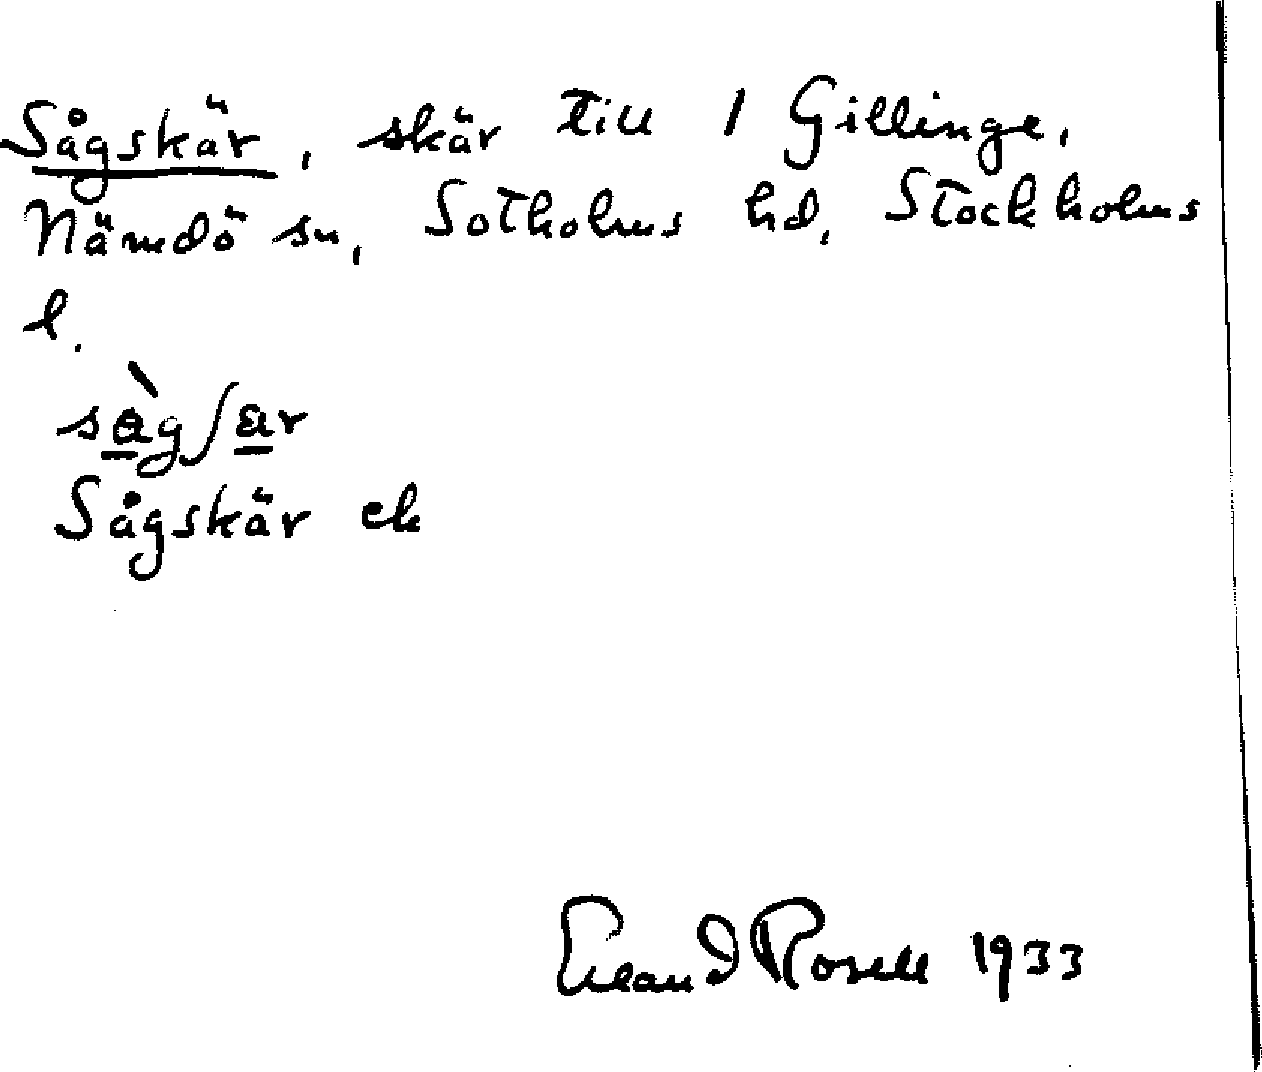 Sågskär, skär till 1 Gillinge,
Nämdö sn, Sotholms hd, Stockholms
l.
sàgʃär
Sågskär ek
Erland Rosell 1933